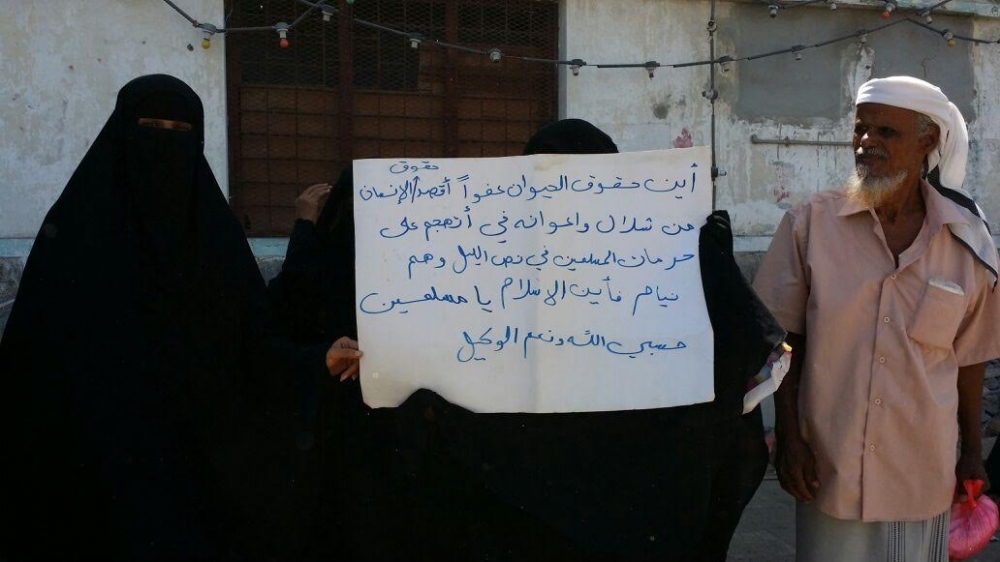 حقوق
أين حقوق الحيوان عفواً أقصد الإنسان
من شلال واعوانه في أتهجم على
حرمات المسلمين في نص اليل وهم
نيام فأين الإسلام يا مسلمين
حسبي الله ونعم الوكيل